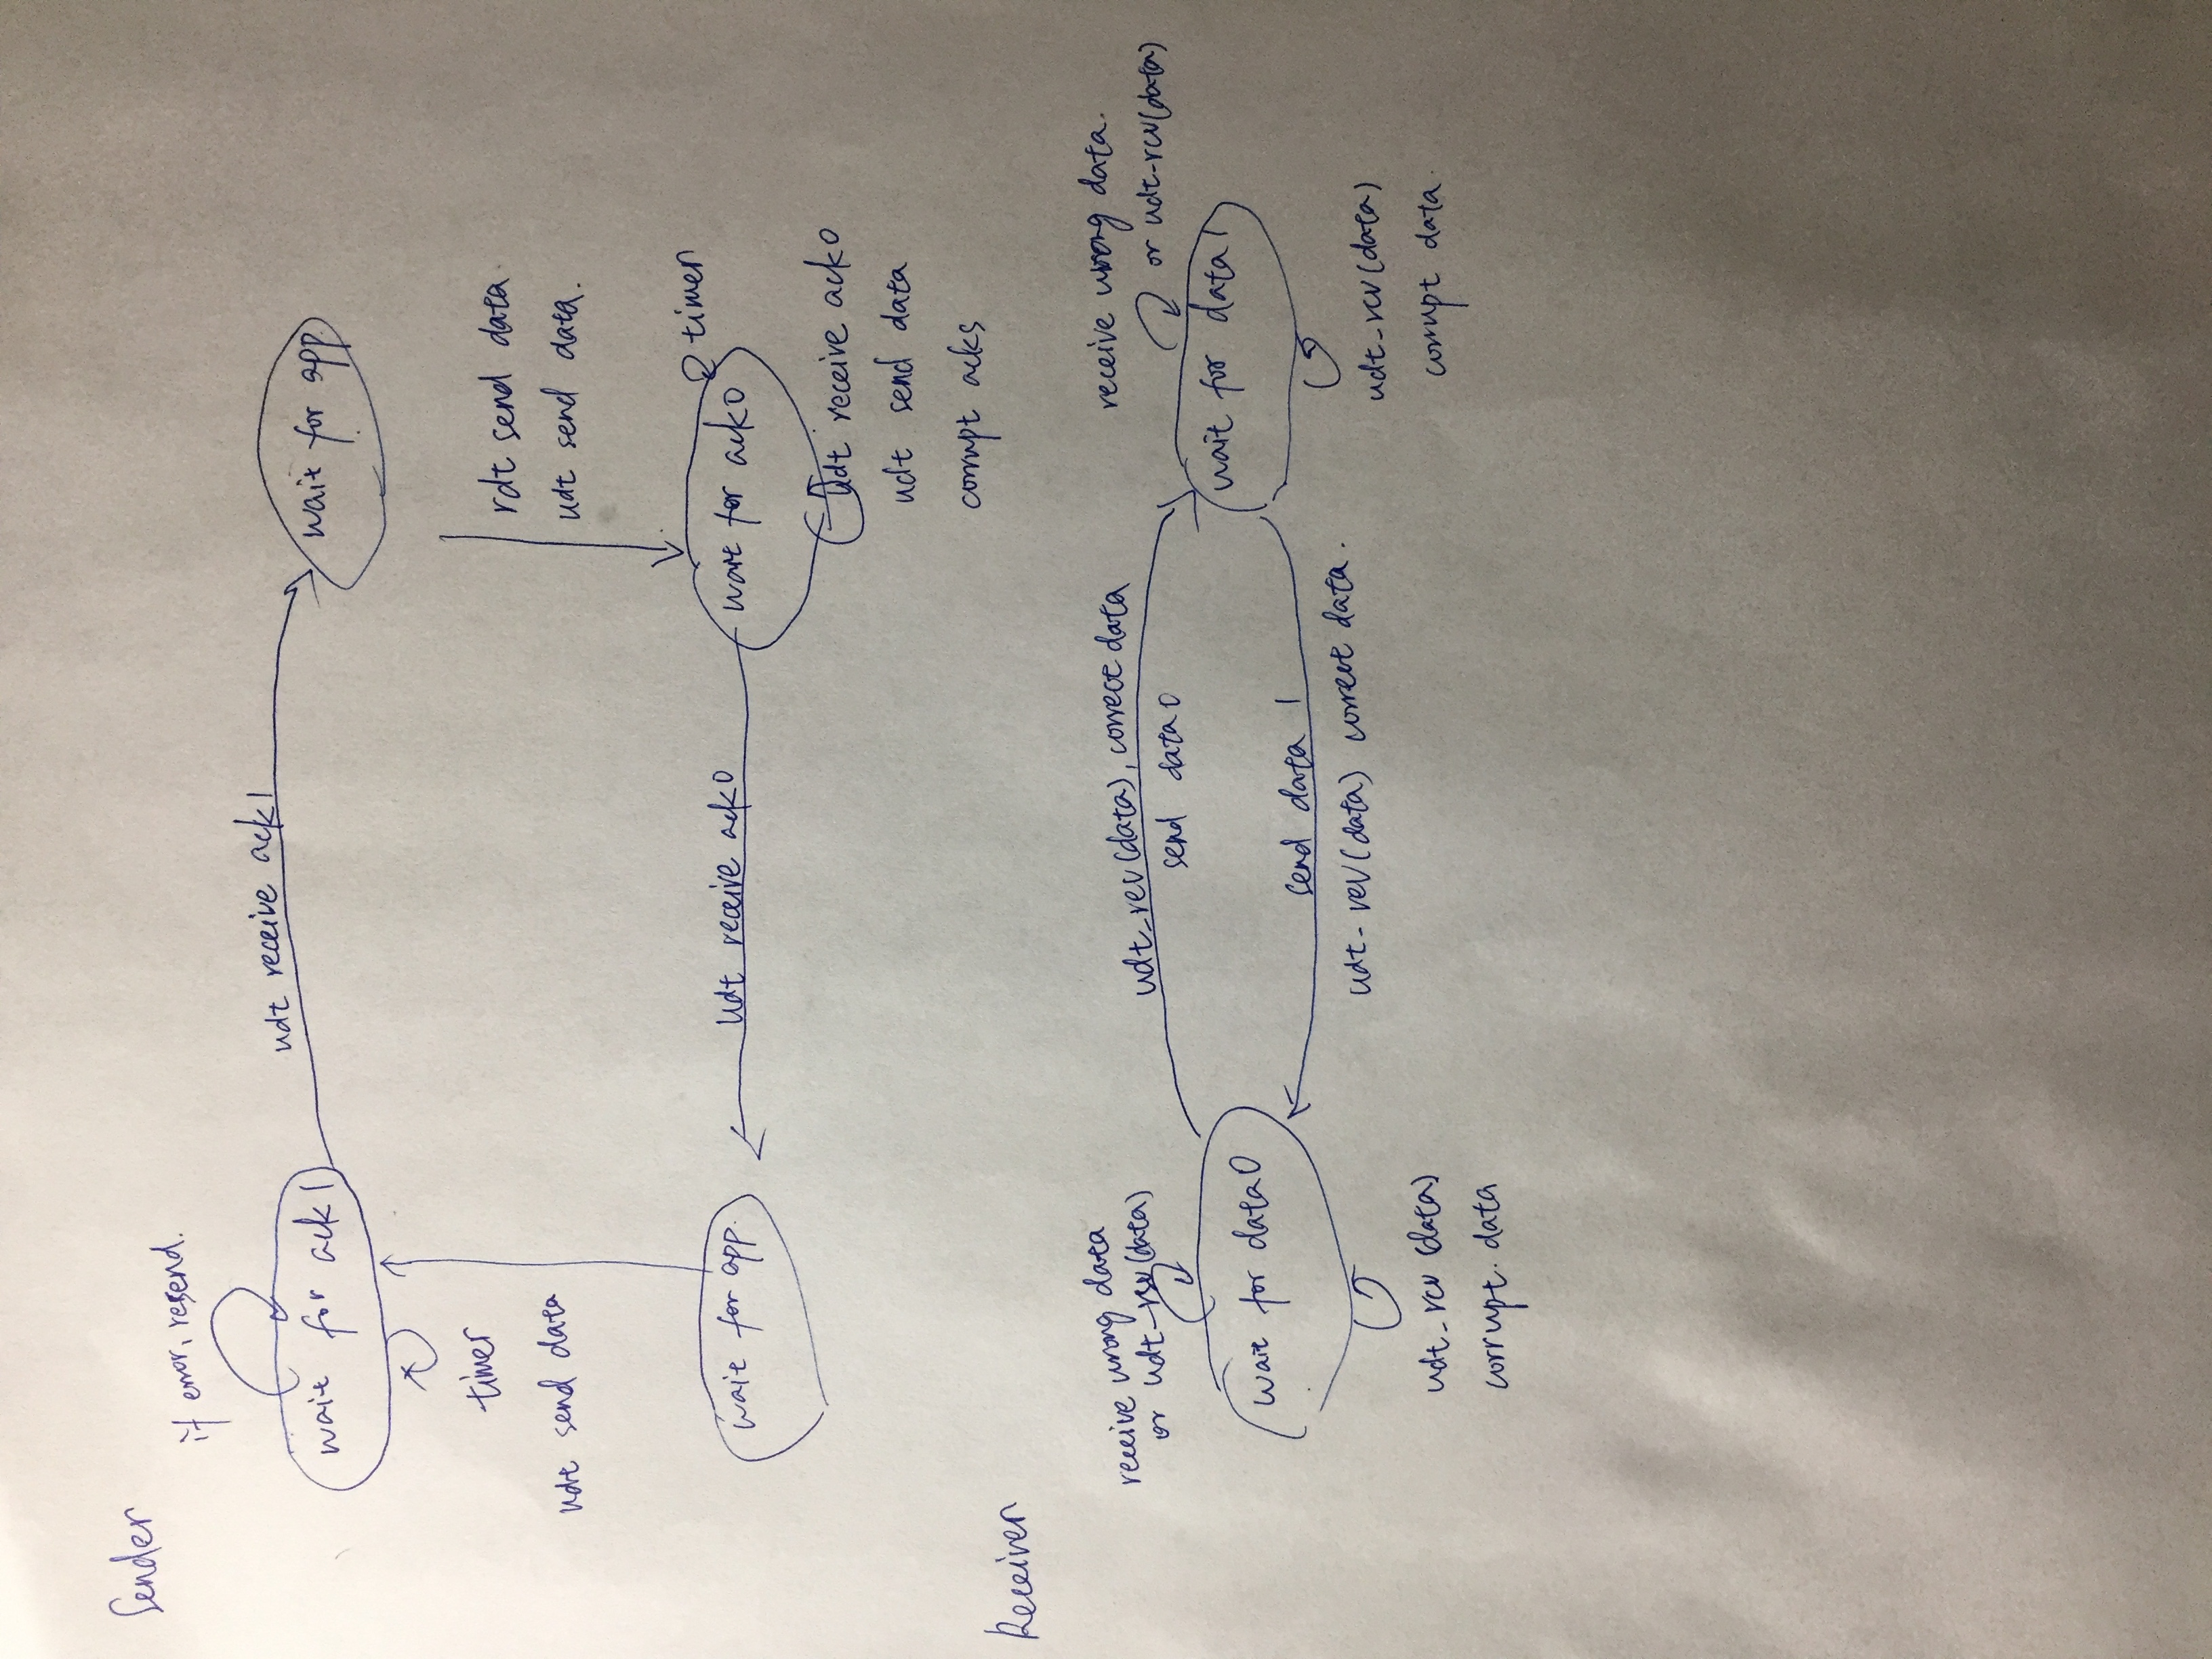 Sender
if error, resend.
udt receive ack1
wait for ack1
wait for app
timer
udt send data
rdt send data
udt send data.
timer
wait for app.
udt receive ack0
wait for ack0
udt receive ack0
udt send data
corrupt acks
Receiver
receive wrong data
or udt_rcv(data)
udt_rcv(data), correct data
send data0
receive wrong data.
or udt-rcv(data)
wait for data0
wait for data1
send data 1
udt-rcv(data) correct data.
udt_rcv (data)
corrupt. data
udt-rcv(data)
corrupt data.